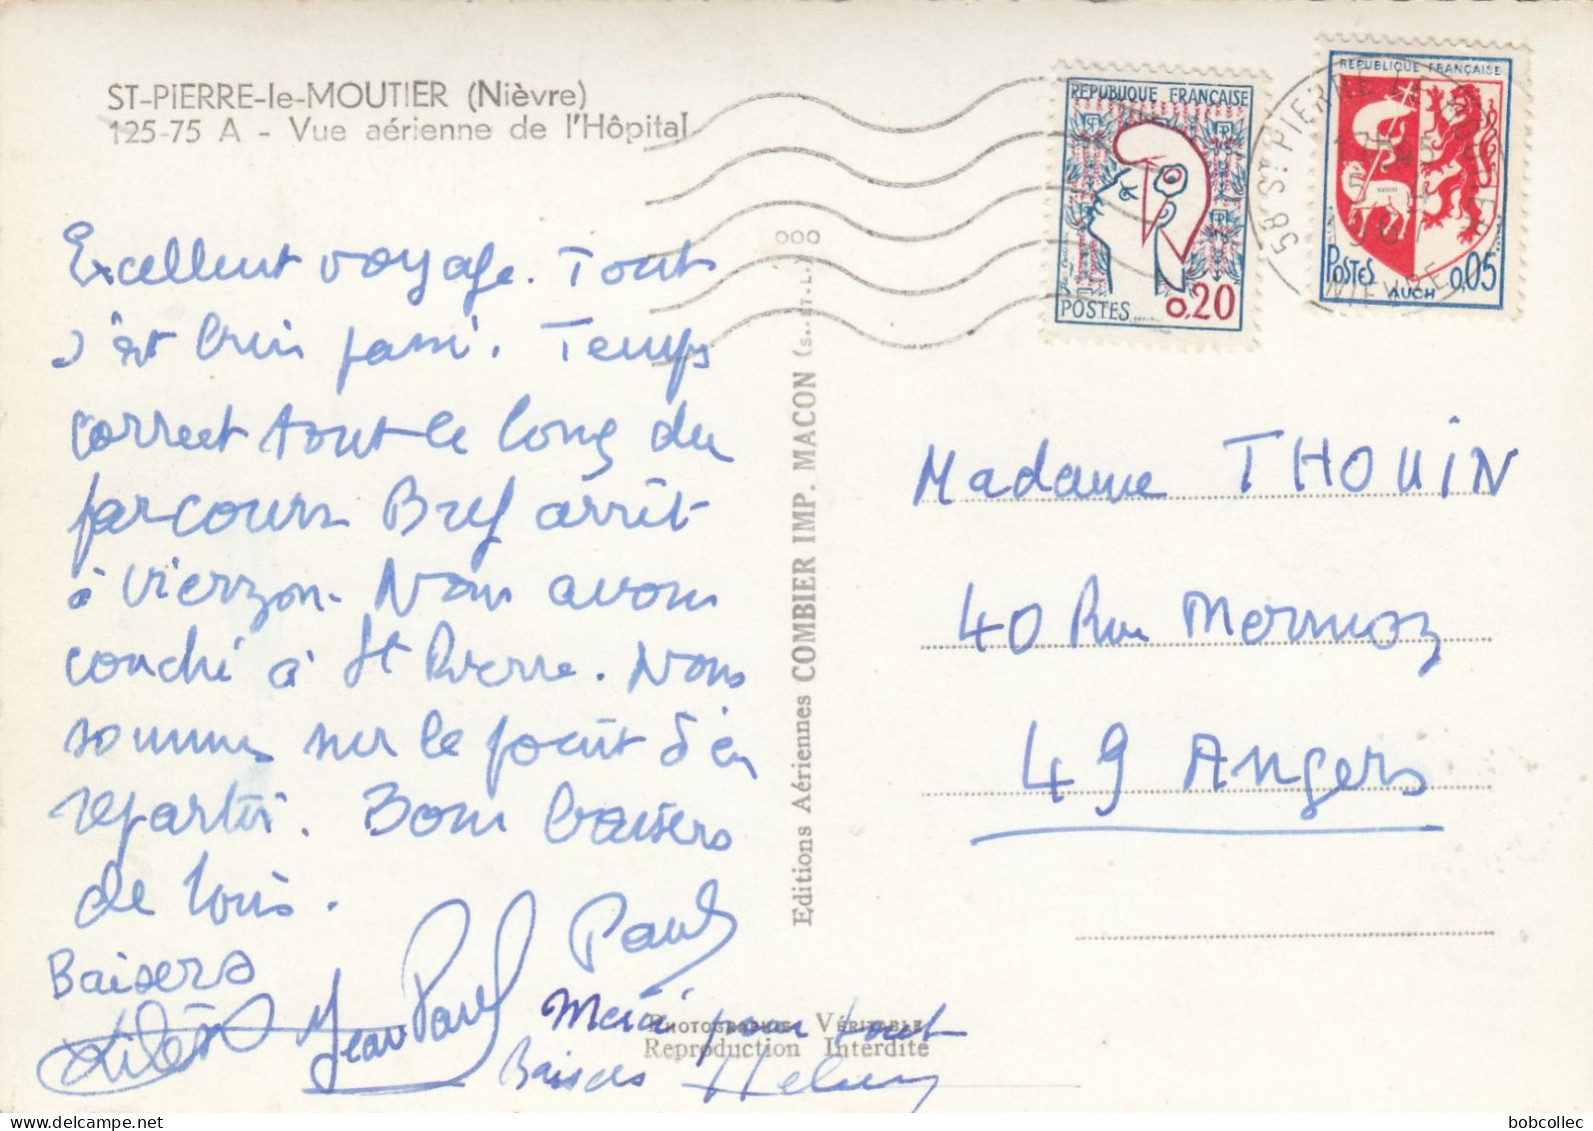 ST-PIERRE-le-MOUTIER (Nièvre)
125-75 A - Vue aérienne de l'Hôpital
Excellent voyage. Tout
s'est bien passé. Temps
correct tout le long du
parcours Bref arrêt
à Vierzon. Nous avons
couché à St Pierre. Nous
sommes sur le point d'en
repartir. Bons baisers
de tous.
Paul
Baisers
Jean Paul
Merci pour tout
Baisers
PHOTOGRAPHIE VÉRITABLE
Reproduction Interdite
Editions Aériennes COMBIER IMP. MACON (S.-ET-L.)
000
REPUBLIQUE FRANÇAISE
POSTES
0,20
REPUBLIQUE FRANÇAISE
POSTES
AUCH
0,05
58 ST PIERRE LE MOUTIER
NIEVRE
Madame THOUIN
40 Rue Mermoz
49 Angers
bobcollec